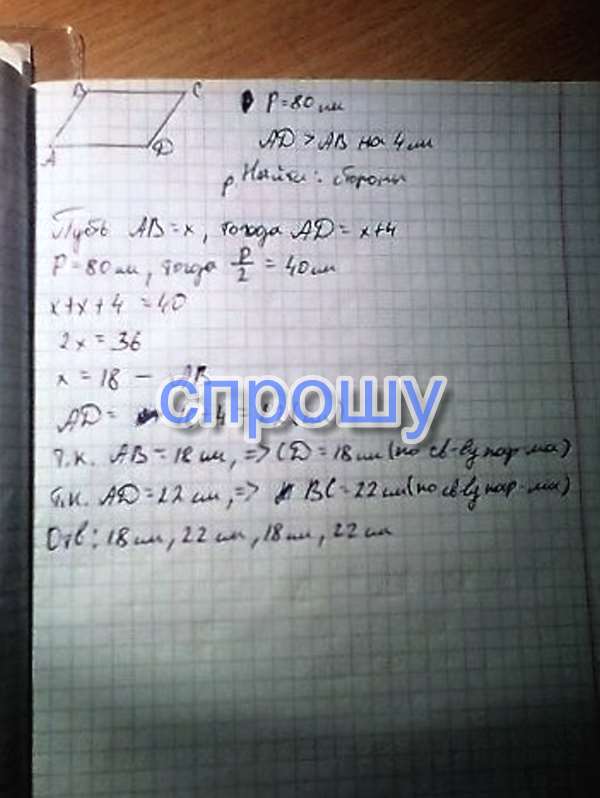 B C
A D
P = 80 см
AD > AB на 4 см
Найти: стороны
Пусть AB = x, тогда AD = x+4
P = 80 см, тогда P/2 = 40 см
x+x+4 = 40
2x = 36
x = 18 — AB
AD =
спрошу
т.к. AB = 18 см, => CD = 18 см (по св-ву пар-ма)
т.к. AD = 22 см, => BC = 22 см (по св-ву пар-ма)
Отв: 18 см, 22 см, 18 см, 22 см